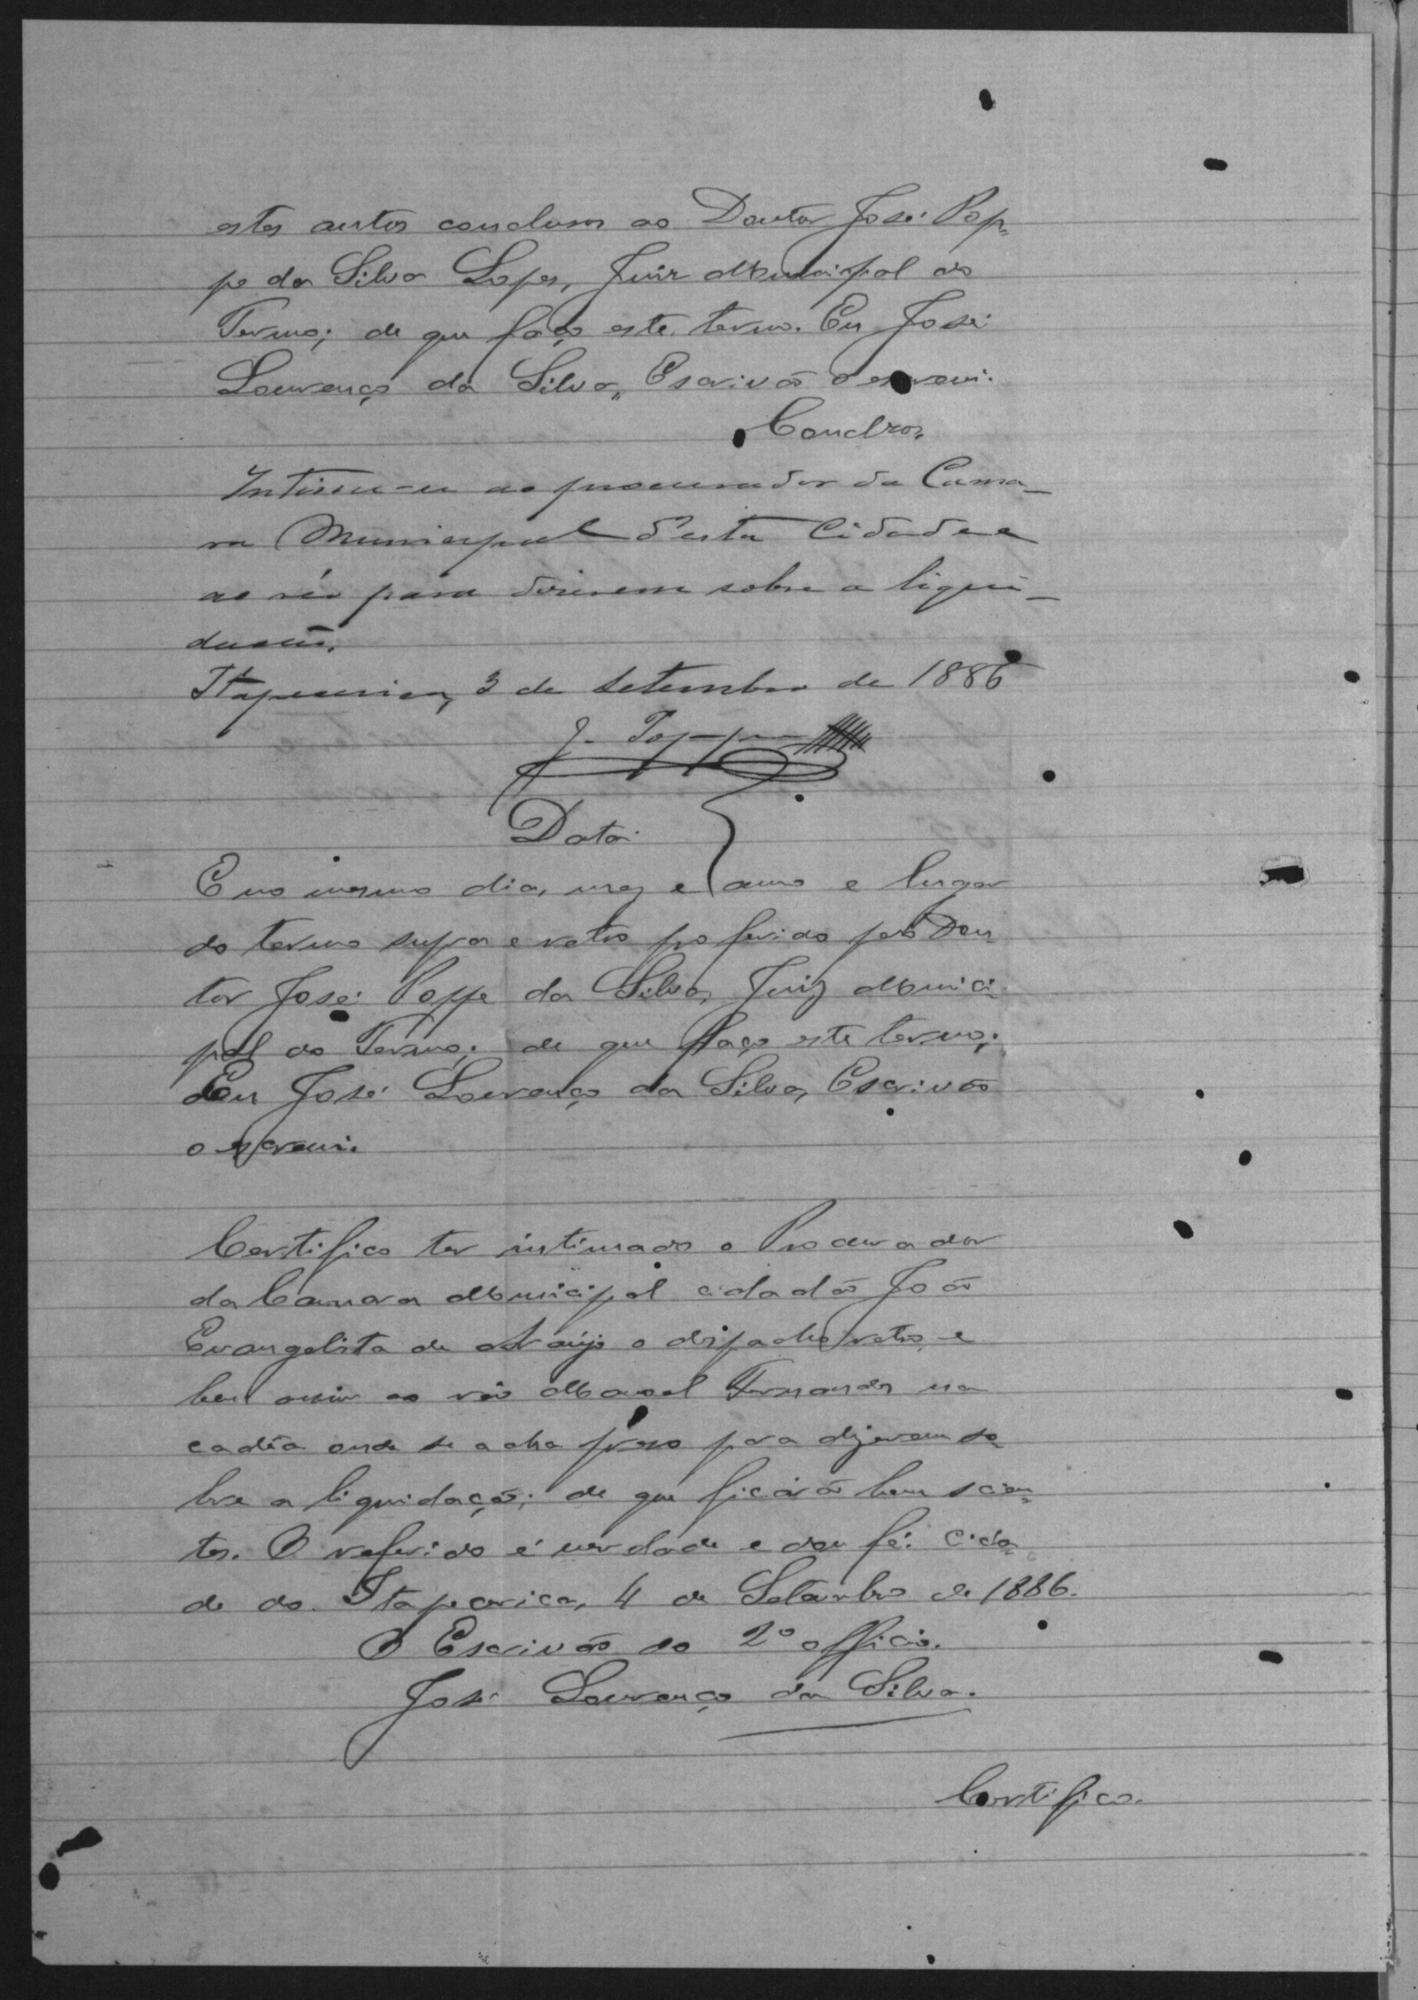 estes autos conclusos ao Doutor José Pop-
pe da Silva Lopes, Juiz Municipal do
Termo; de que faço este termo. Eu José
Lourenço da Silva, Escrivão o escrevi.
Intime-se ao procurador da Cama-
ra Municipal d'esta Cidade e
ao réo para dizerem sobre a liqui-
dação.
Itapecerica, 3 de Setembro de 1886
J. Poppe
Data
E no mesmo dia, mez e anno e lugar
do termo supra e retro proferido pelo Dou
tor José Poppe da Silva, Juiz Munici
pal do Termo; de que faço este termo;
Eu José Lourenço da Silva, Escrivão
o escrevi.
Certifico ter intimado o Procurador
da Camara Municipal cidadão João
Evangelista de Araujo o dispacho retro, e
bem assim ao réo Manoel Fernandes na
cadêa onde se acha prêso para dizerem so
bre a liquidação; de que ficárão bem scien-
tes. O referido é verdade e dou fé. Cida-
de de Itapecerica, 4 de Setembro de 1886.
O Escrivão do 2º officio.
José Lourenço da Silva.
Certifico.